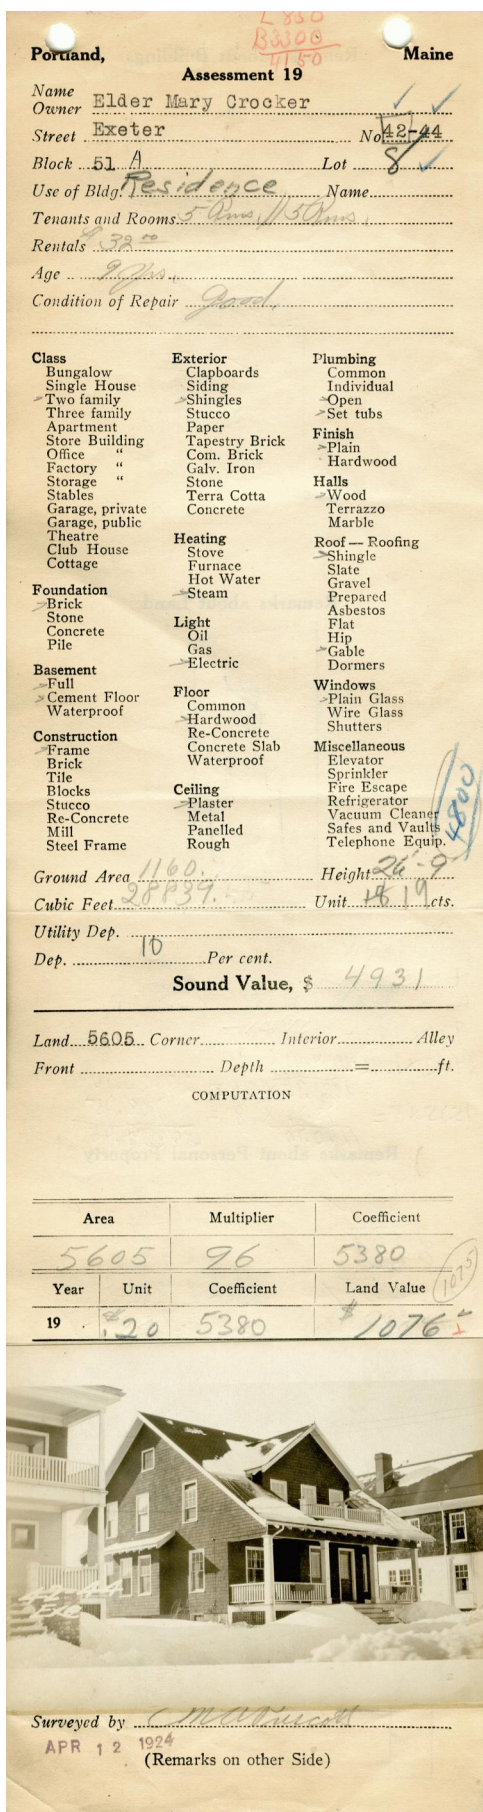 L 850
B3300
4150
Portland, Maine
Assessment 19
Name
Owner Elder Mary Crocker
Street Exeter No 42-44
Block 51 A Lot 8
Use of Bldg. Residence Name
Tenants and Rooms 5 Rms. // 5 Rms.
Rentals $32.00
Age 9 yrs.
Condition of Repair Good.
Class
Bungalow
Single House
Two family
Three family
Apartment
Store Building
Office "
Factory "
Storage "
Stables
Garage, private
Garage, public
Theatre
Club House
Cottage
Foundation
Brick
Stone
Concrete
Pile
Basement
Full
Cement Floor
Waterproof
Construction
Frame
Brick
Tile
Blocks
Stucco
Re-Concrete
Mill
Steel Frame
Exterior
Clapboards
Siding
Shingles
Stucco
Paper
Tapestry Brick
Com. Brick
Galv. Iron
Stone
Terra Cotta
Concrete
Heating
Stove
Furnace
Hot Water
Steam
Light
Oil
Gas
Electric
Floor
Common
Hardwood
Re-Concrete
Concrete Slab
Waterproof
Ceiling
Plaster
Metal
Panelled
Rough
Plumbing
Common
Individual
Open
Set tubs
Finish
Plain
Hardwood
Halls
Wood
Terrazzo
Marble
Roof — Roofing
Shingle
Slate
Gravel
Prepared
Asbestos
Flat
Hip
Gable
Dormers
Windows
Plain Glass
Wire Glass
Shutters
Miscellaneous
Elevator
Sprinkler
Fire Escape
Refrigerator
Vacuum Cleaner
Safes and Vaults
Telephone Equip.
4800
Ground Area 1160. Height
Cubic Feet 28839. Unit 18 19 cts.
Utility Dep.
Dep. 10 Per cent.
Sound Value, $ 4931
Land 5605 Corner Interior Alley
Front Depth = ft.
COMPUTATION
Area Multiplier Coefficient
5605 96 5380
1075
Year Unit Coefficient Land Value
19 $.20 5380 $1076
42-44
Surveyed by
APR 12 1924
(Remarks on other Side)